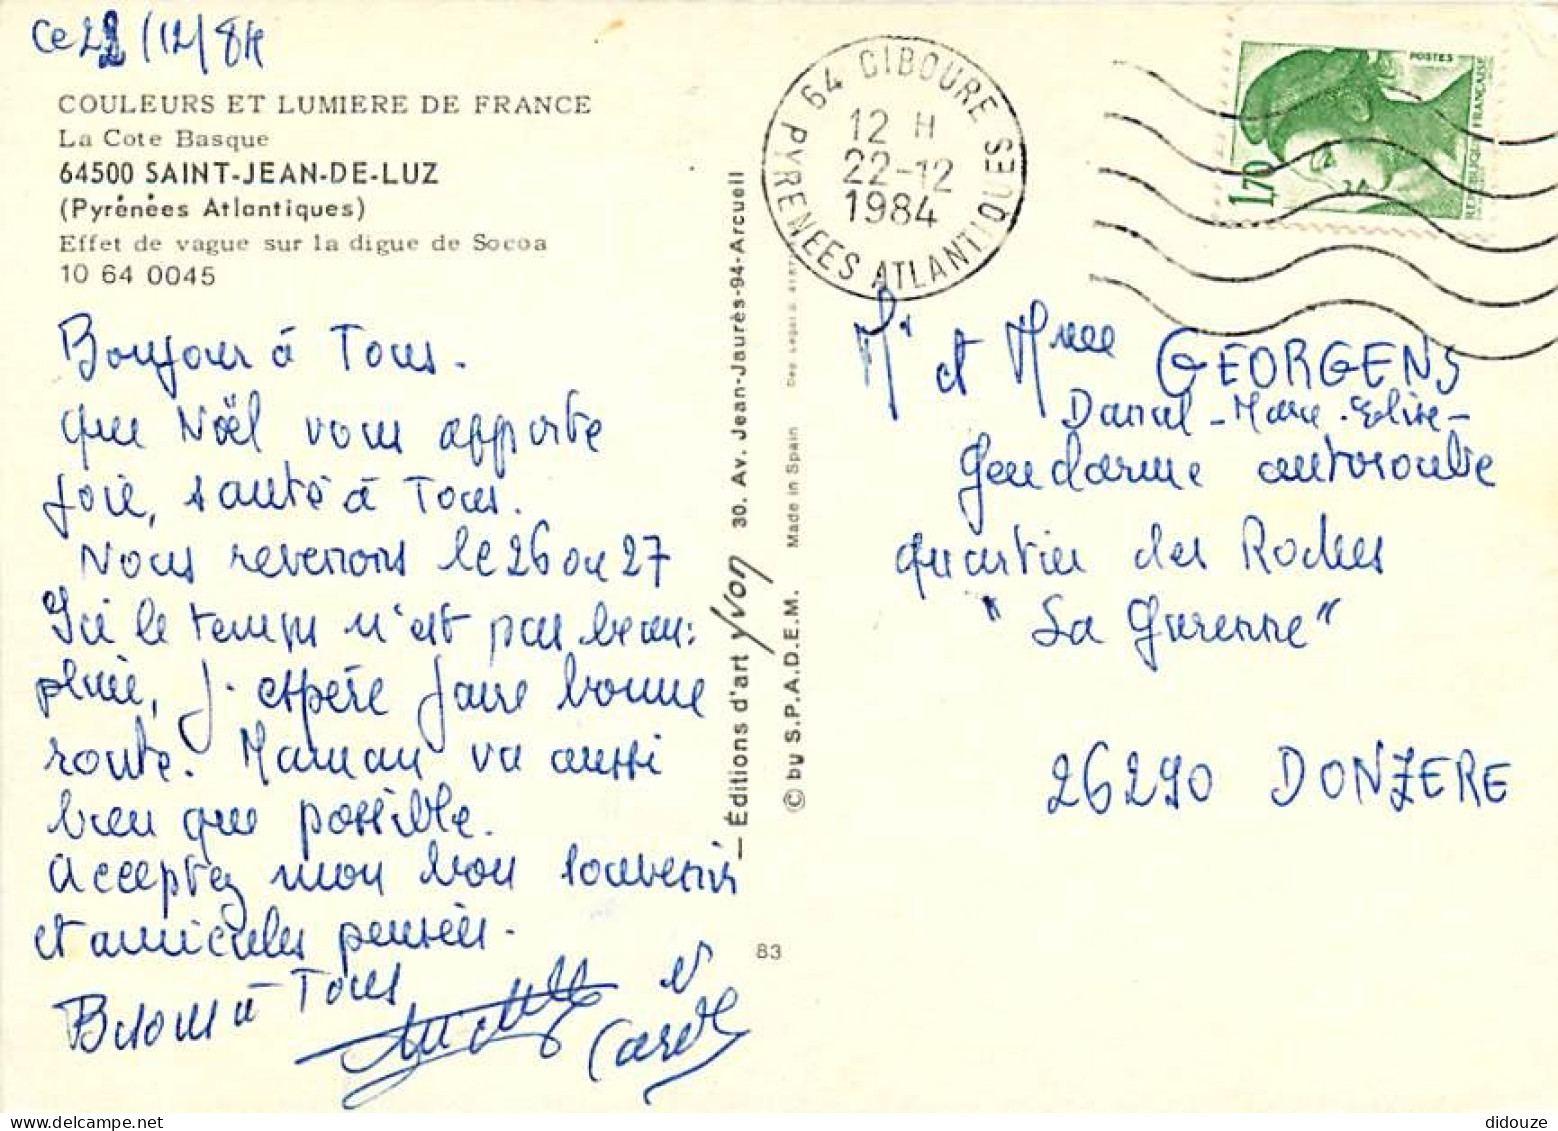 Ce 22/12/84
COULEURS ET LUMIERE DE FRANCE
La Cote Basque
64500 SAINT-JEAN-DE-LUZ
(Pyrénées Atlantiques)
Effet de vague sur la digue de Socoa
10 64 0045
Bonjour à Tous.
que Noël vous apporte
joie, santé à Tous.
Nous revenons le 26 ou 27
Ici le temps n'est pas beau:
pluie, j. espère faire bonne
route. Maman va aussi
bien que possible.
Acceptez mon bon souvenir
et amicales pensées.
Bisous à Tous
et
Carole
— Éditions d'art yvon 30. Av. Jean-Jaurès-94-Arcueil
© by S.P.A.D.E.M. Made in Spain Dep. Legal B.
83
64 CIBOURE
12 H
22-12
1984
PYRENEES ATLANTIQUES
POSTES
1,70
REPUBLIQUE FRANCAISE
Mr et Mme GEORGENS
Daniel - Marc - Elise -
Gendarme autoroute
quartier des Roches
"La Garenne"
26290 DONZERE
didouze